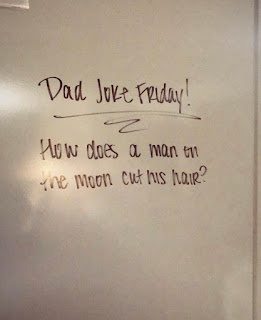 Dad Joke Friday!
How does a man on
the moon cut his hair?